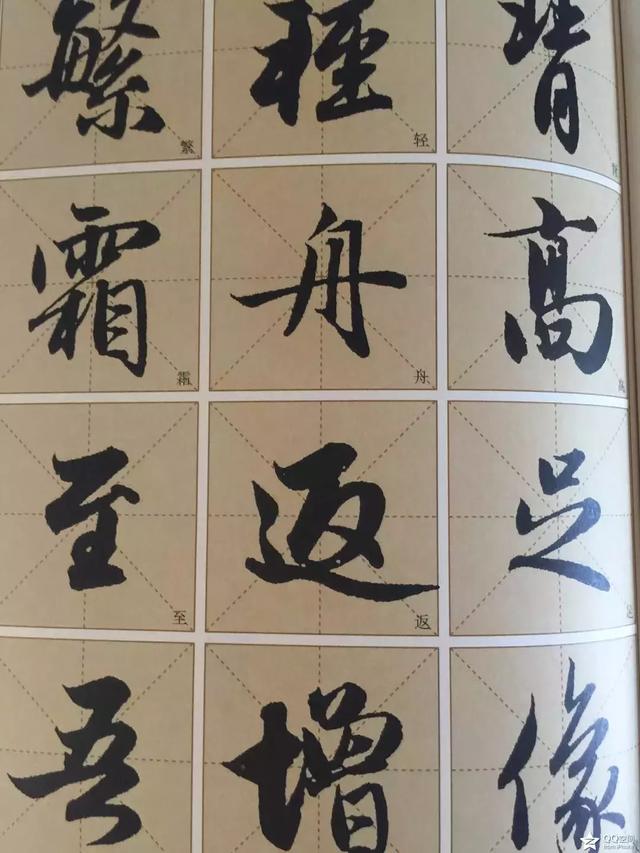 繁 輕
繁 轻
霜 舟 高
霜 舟 高
至 返 足
至 返 足
吾 增 像
QQ空间